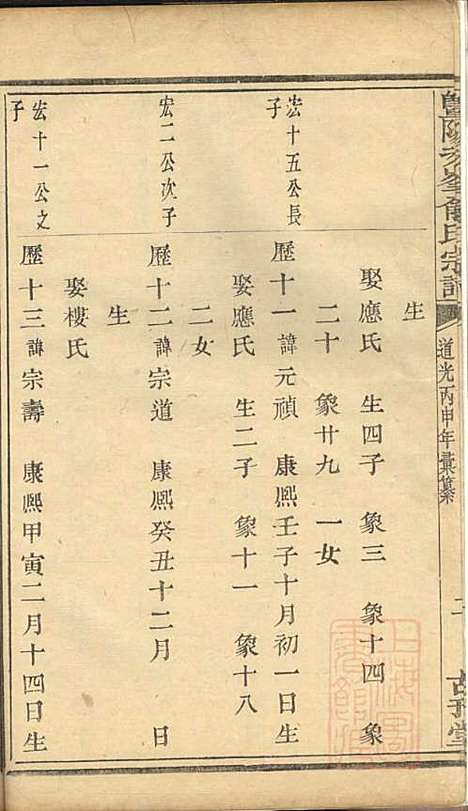 暨陽孝峯俞氏宗譜 道光丙申年彙纂 二
生
娶應氏 生四子 象三 象十四 象
二十 象廿九 一女
宏十五公長子
歷十一 諱元禎 康熙壬子十月初一日生
娶應氏 生二子 象十一 象十八
二女
宏二公次子
歷十二 諱宗道 康熙癸丑十二月 日
生
娶樓氏
宏十一公之子
歷十三 諱宗壽 康熙甲寅二月十四日生